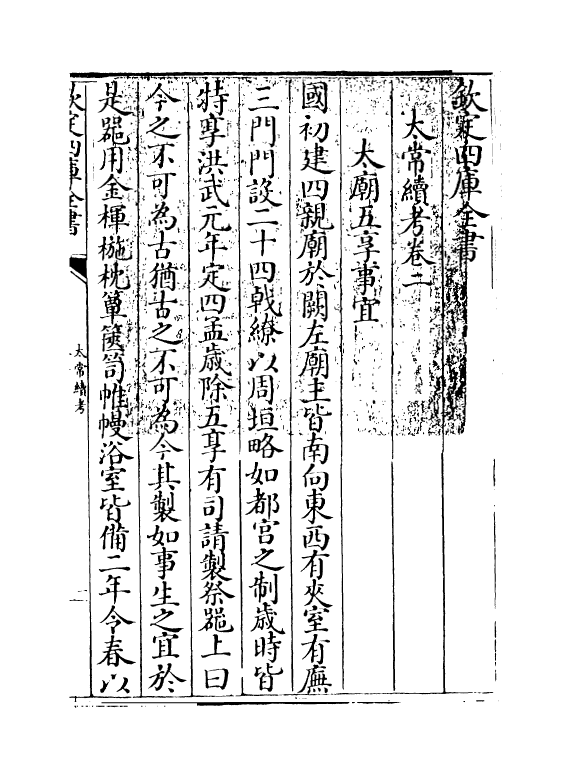 欽定四庫全書
太常續考卷二
太廟五享事宜
國初建四親廟於闕左廟主皆南向東西有夾室有廡
三門門設二十四戟繚以周垣略如都宮之制歲時皆
特享洪武元年定四孟歲除五享有司請製祭器上曰
今之不可為古猶古之不可為今其製如事生之宜於
是器用金楎椸枕簟篋笥帷幔浴室皆備二年令春以
欽定四庫全書
太常續考